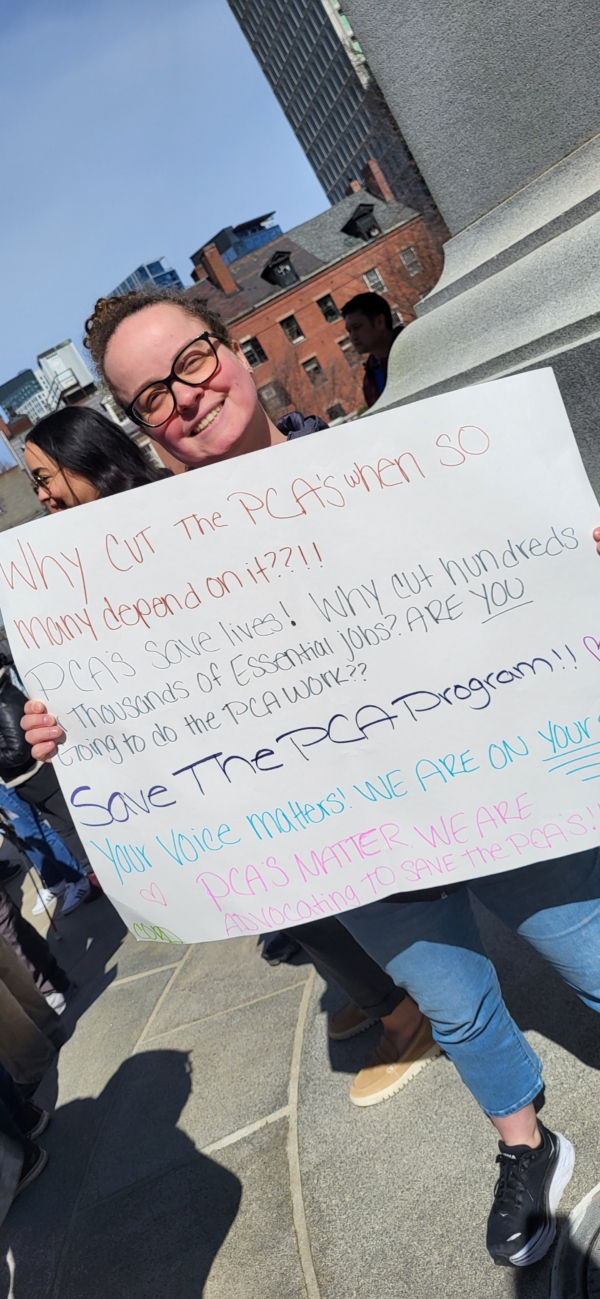 Why CUT The PCA's when SO
many depend on it??!!
PCA's Save lives! Why cut hundreds
Thousands of Essential jobs? ARE YOU
Going to do the PCA WORK??
Save The PCA Program!!
Your Voice matters! WE ARE ON YOUR
PCA'S MATTER. WE ARE
ADVOCATING TO SAVE the PCA's!!